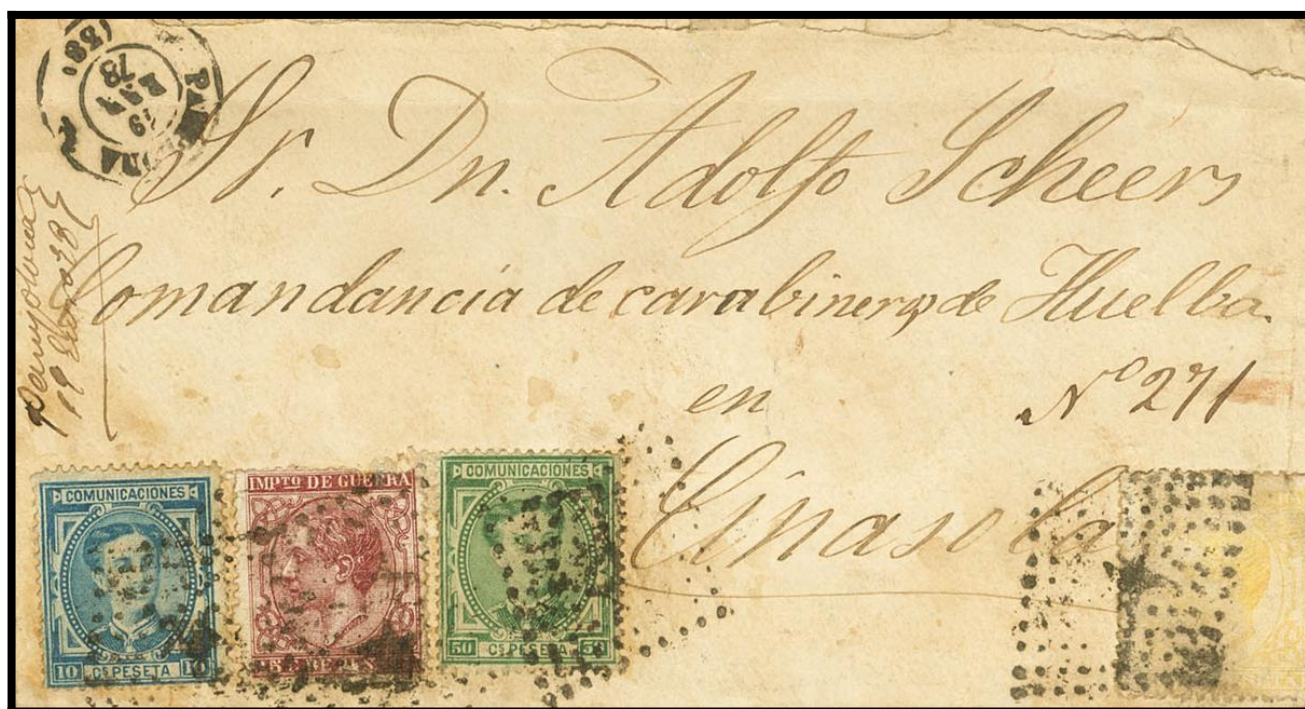 PAMPLONA
19
ENE
78
(38)
Sr. Dn. Adolfo Scheers
Comandancia de carabineros de Huelba.
en Nº 271
Cinasola
Pamplona
19 Enero 88
COMUNICACIONES
10 Cs PESETA 10
IMPTO DE GUERRA
COMUNICACIONES
50 Cs PESETA 50